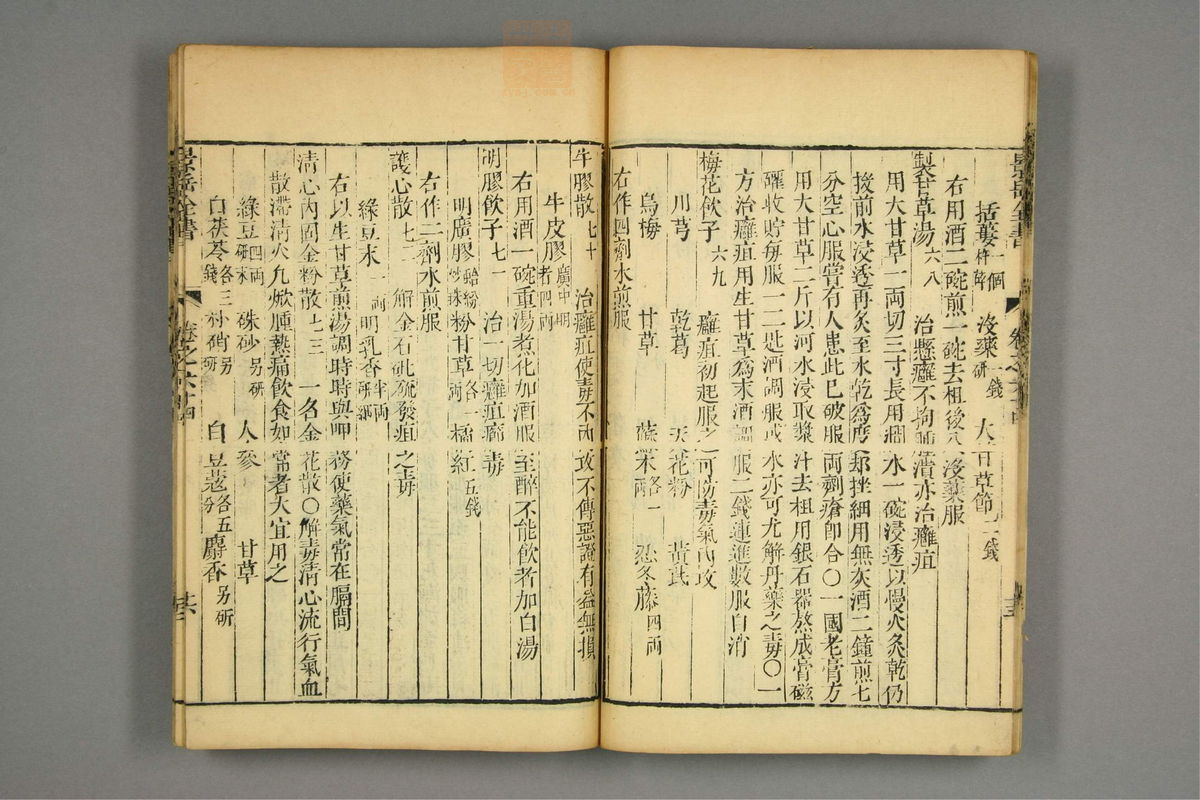 景岳全書 卷之六十四
括蔞一個杵碎 沒藥一錢研 大甘草節二錢
右用酒二碗煎一碗去柤後入沒藥服
製甘草湯六八 治懸癰不拘腫潰亦治癰疽
用大甘草一兩切三寸長用澗水一碗浸透以慢火炙乾仍
投前水浸透再炙至水乾為度却挫細用無灰酒二鐘煎七
分空心服嘗有人患此已破服兩劑瘡即合○一國老膏方
用大甘草二斤以河水浸取漿汁去柤用銀石器熬成膏磁
礶收貯每服一二匙酒調服或水亦可尤解丹藥之毒○一
方治癰疽用生甘草為末酒調服二錢連進數服自消
梅花飲子六九 癰疽初起服之可防毒氣內攻
川芎 乾葛 天花粉 黃芪
烏梅 甘草 蘇木各一兩 忍冬藤四兩
右作四劑水煎服
牛膠散七十 治癰疽使毒不內攻不傳惡證有益無損
牛皮膠廣中明者四兩
右用酒一碗重湯煮化加酒服至醉不能飲者加白湯
明膠飲子七一 治一切癰疽癤毒
明廣膠蛤粉炒珠 粉甘草各一兩 橘紅五錢
右作二劑水煎服
護心散七二 解金石砒硫發疽之毒
綠豆末一兩 明乳香半兩研細
右以生甘草煎湯調時時與呷務使藥氣常在膈間
清心內固金粉散七三 一名金花散○解毒清心流行氣血
散滯清火凡焮腫熱痛飲食如常者大宜用之
綠豆四兩研末 硃砂另研 人參 甘草
白茯苓各三錢 朴硝另研 白豆蔻各五分 麝香另研
景岳全書 卷之六十四